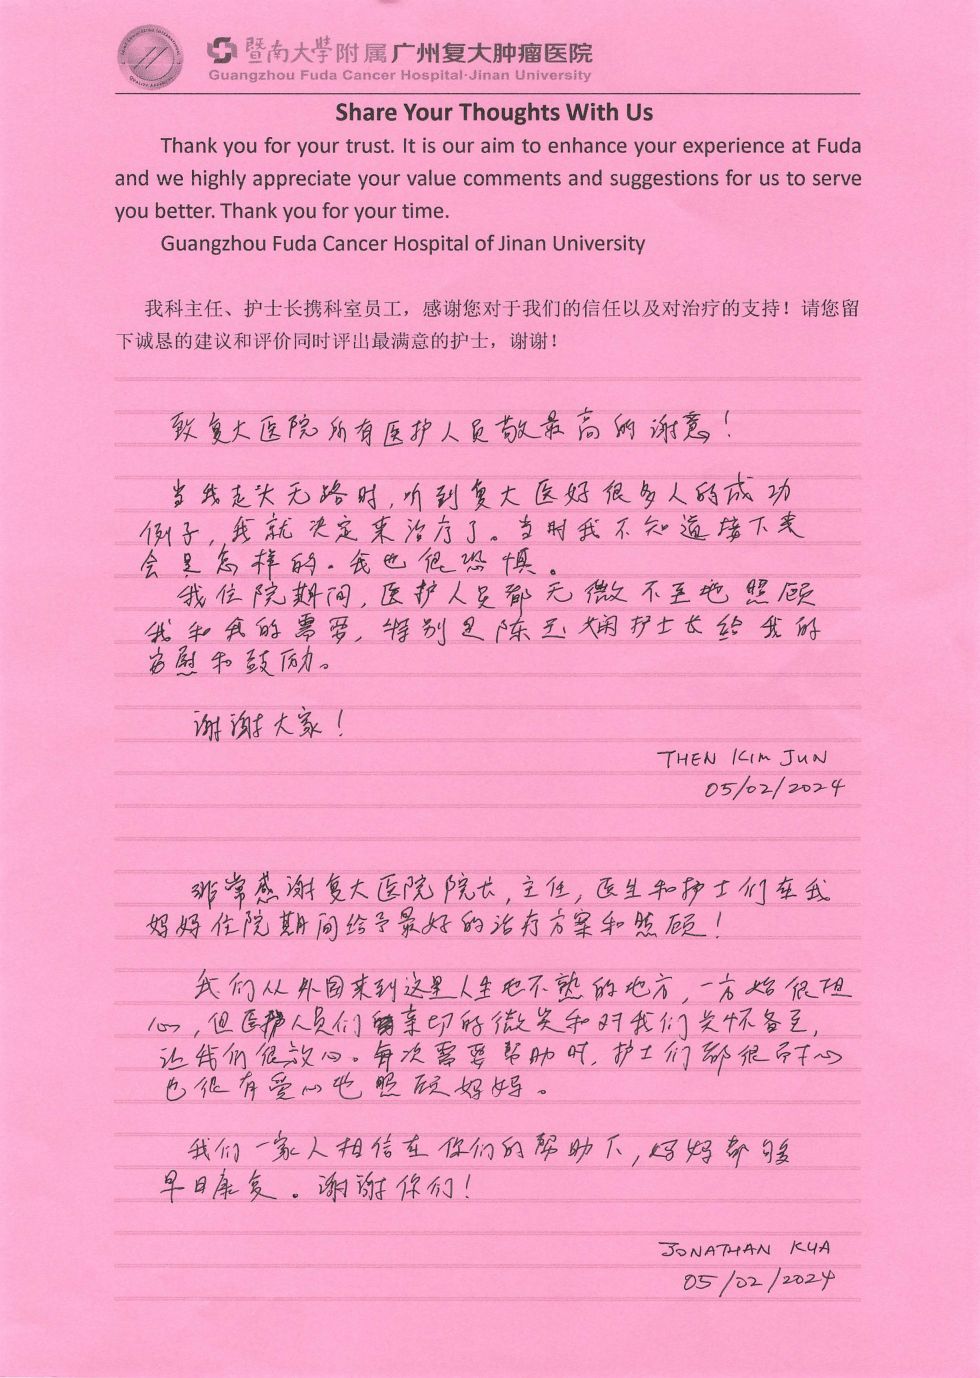 暨南大学附属广州复大肿瘤医院
Guangzhou Fuda Cancer Hospital·Jinan University
Share Your Thoughts With Us
Thank you for your trust. It is our aim to enhance your experience at Fuda
and we highly appreciate your value comments and suggestions for us to serve
you better. Thank you for your time.
Guangzhou Fuda Cancer Hospital of Jinan University
我科主任、护士长携科室员工，感谢您对于我们的信任以及对治疗的支持！请您留
下诚恳的建议和评价同时评出最满意的护士，谢谢！
致复大医院所有医护人员敬最高的谢意！
当我走头无路时，听到复大医好很多人的成功
例子，我就决定来治疗了。当时我不知道接下来
会是怎样的。我也很恐惧。
我住院期间，医护人员都无微不至地照顾
我和我的需要，特别是陈玉娴护士长给我的
安慰和鼓励。
谢谢大家！
THEN KIM JUN
05/02/2024
非常感谢复大医院院长，主任，医生和护士们在我
妈妈住院期间给予最好的治疗方案和照顾！
我们从外国来到这里人生地不熟的地方，一方始很担
心，但医护人员们亲切的微笑和对我们关怀备至，
让我们很放心。每次需要帮助时，护士们都很耐心
也很有爱心地照顾妈妈。
我们一家人相信在你们的帮助下，妈妈都够
早日康复。谢谢你们！
JONATHAN KUA
05/02/2024